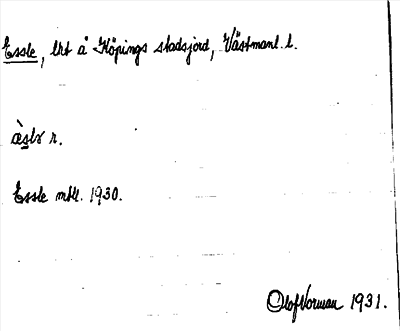 Essle, lht å Köpings stadsjord, Västmanl. l.
æ̀slɤ n.
Essle mtl. 1930.
Olof Norman 1931.